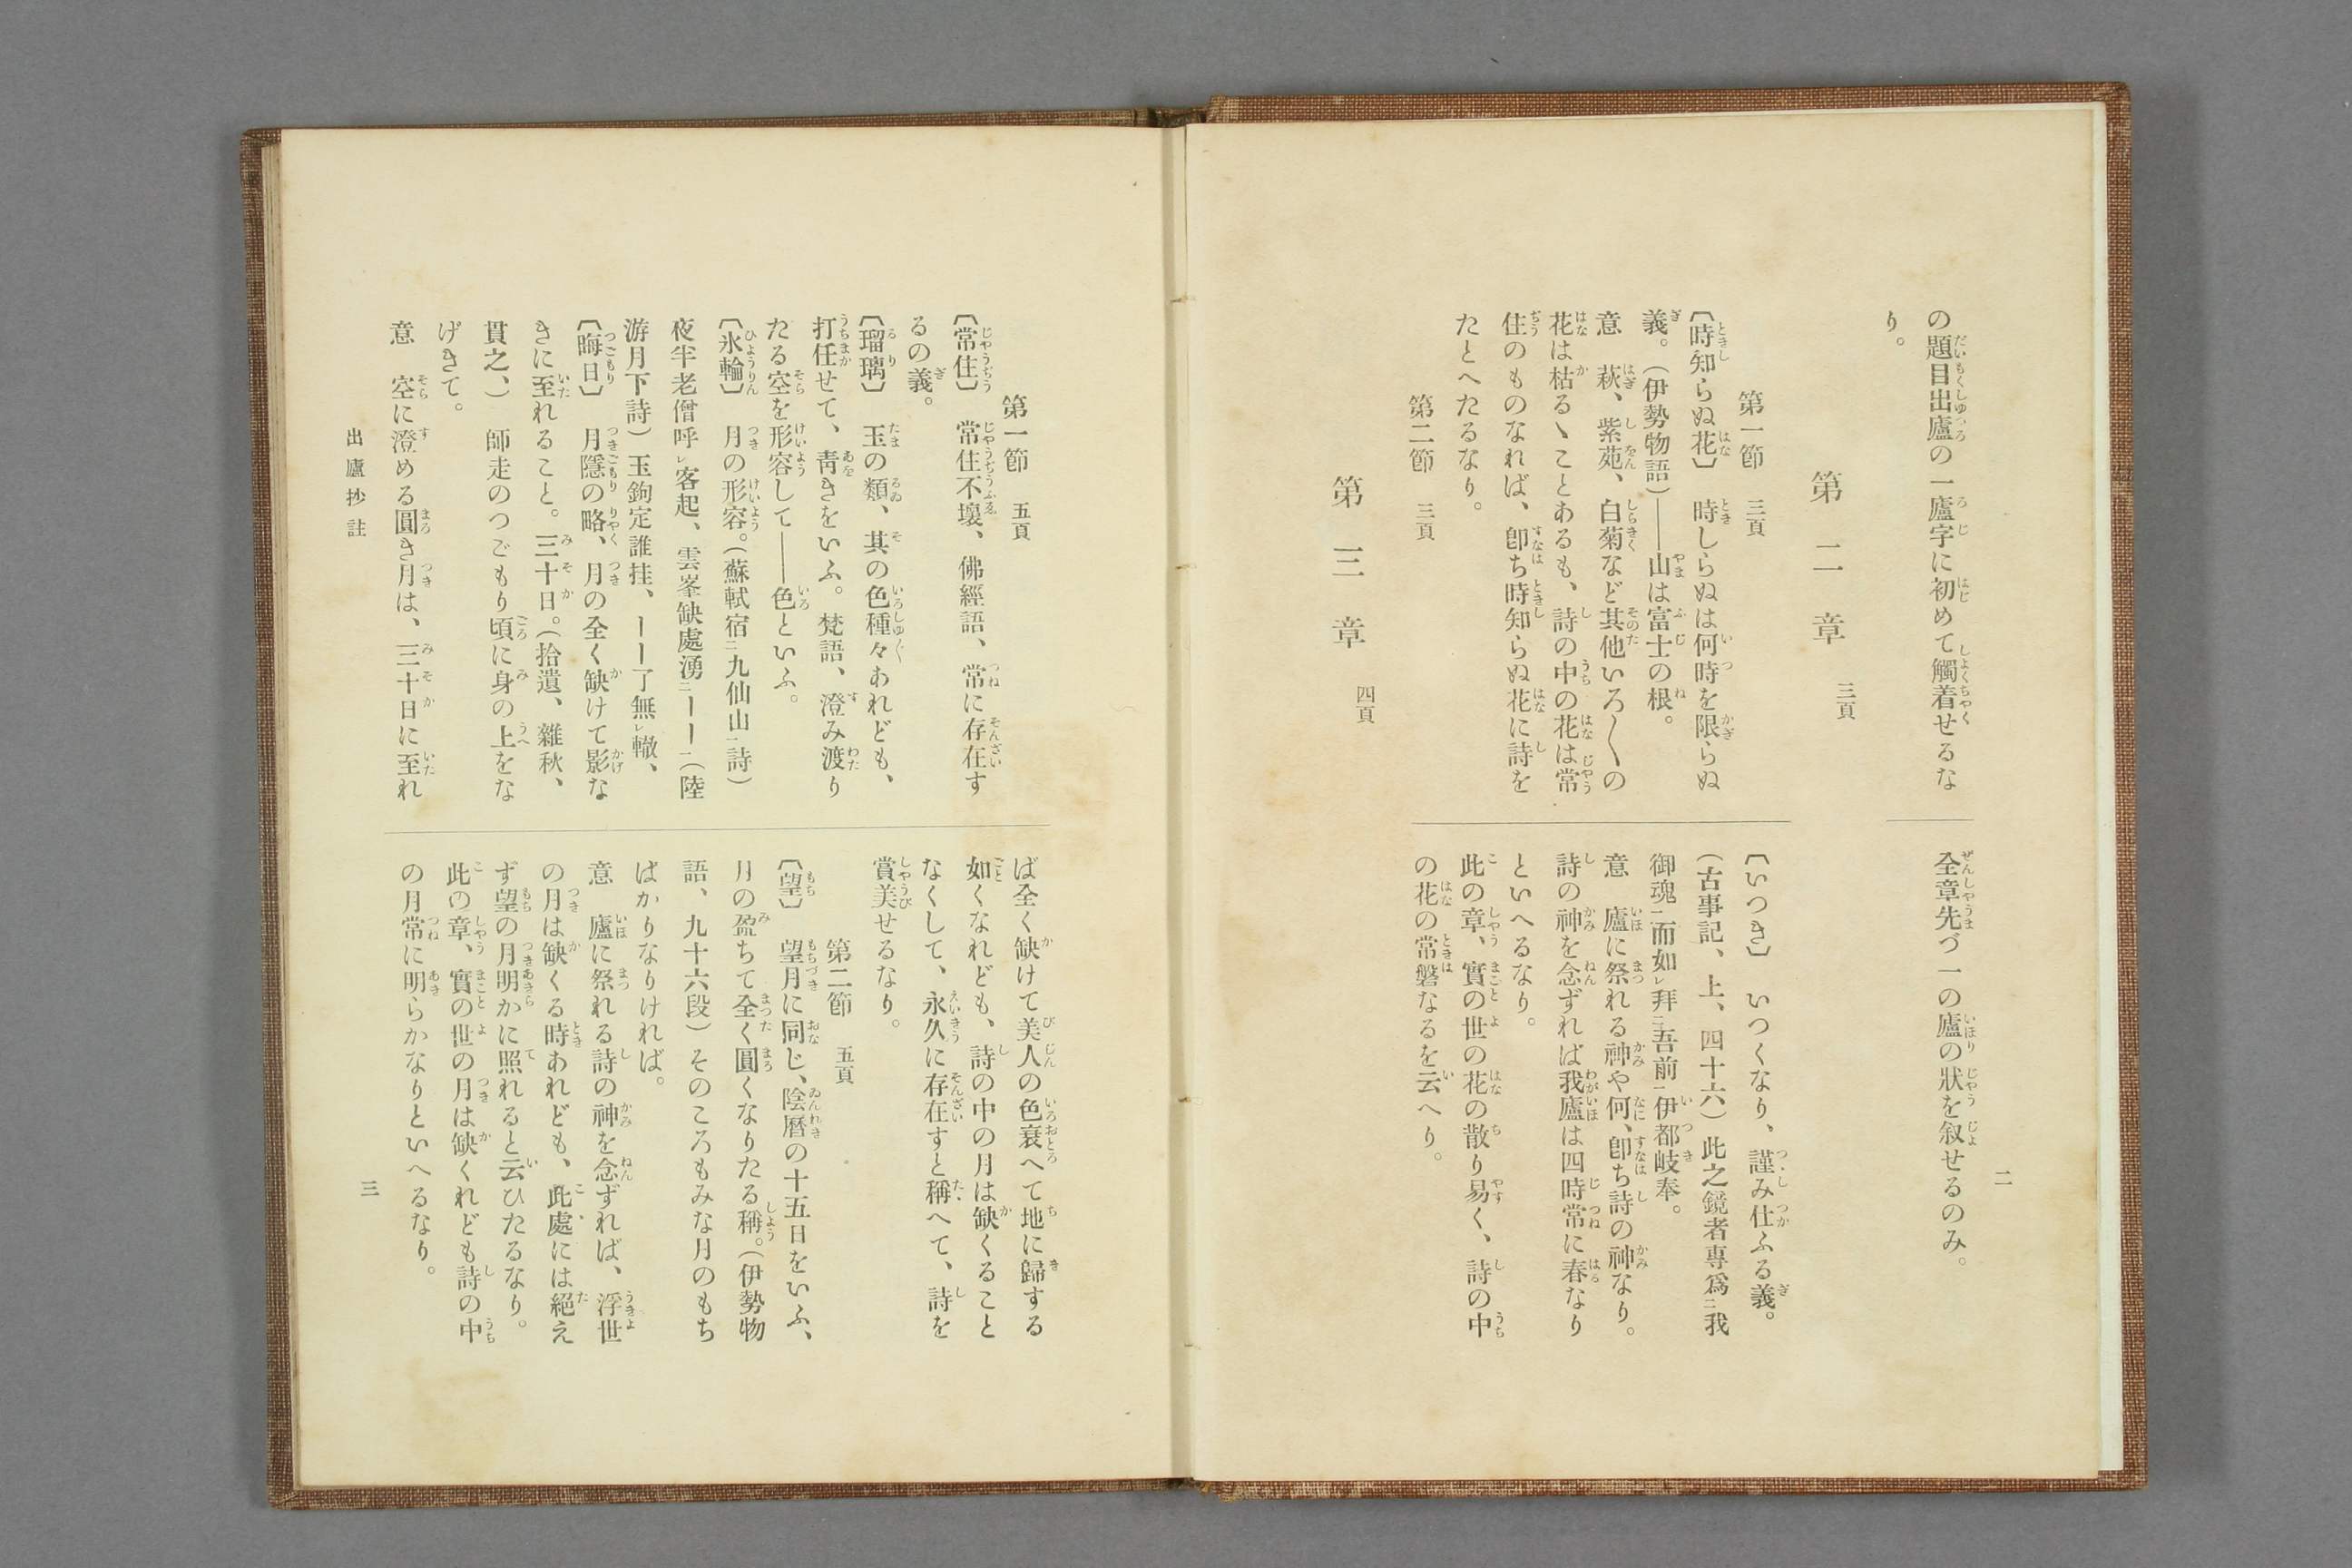 二
の題目出廬の一廬字に初めて觸着せるな
り。
全章先づ一の廬の狀を叙せるのみ。
第二章　三頁
第一節　三頁
〔時知らぬ花〕　時しらぬは何時を限らぬ
義。（伊勢物語）――山は富士の根。
意　萩、紫苑、白菊など其他いろ〱の
花は枯るヽことあるも、詩の中の花は常
住のものなれば、卽ち時知らぬ花に詩を
たとへたるなり。
第二節　三頁
〔いつき〕　いつくなり、謹み仕ふる義。
（古事記、上、四十六）此之鏡者專爲㆓我
御魂㆒而如㆑拜㆓吾前㆒伊都岐奉。
意　廬に祭れる神や何、卽ち詩の神なり。
詩の神を念ずれば我廬は四時常に春なり
といへるなり。
此の章、實の世の花の散り易く、詩の中
の花の常磐なるを云へり。
第三章　四頁
第一節　五頁
〔常住〕　常住不壞、佛經語、常に存在す
るの義。
〔瑠璃〕　玉の類、其の色種々あれども、
打任せて、靑きをいふ。梵語、澄み渡り
たる空を形容して――色といふ。
〔氷輪〕　月の形容。（蘇軾宿㆓九仙山㆒詩）
夜半老僧呼㆑客起、雲峯缺處湧㆓ーー㆒（陸
游月下詩）玉鉤定誰挂、ーー了無㆑轍、
〔晦日〕　月隱の略、月の全く缺けて影な
きに至れること。三十日。（拾遺、雜秋、
貫之、）　師走のつごもり頃に身の上をな
げきて。
意　空に澄める圓き月は、三十日に至れ
ば全く缺けて美人の色衰へて地に歸する
如くなれども、詩の中の月は缺くること
なくして、永久に存在すと稱へて、詩を
賞美せるなり。
第二節　五頁
〔望〕　望月に同じ、陰曆の十五日をいふ、
月の盈ちて全く圓くなりたる稱。（伊勢物
語、九十六段）そのころもみな月のもち
ばかりなりければ。
意　廬に祭れる詩の神を念ずれば、浮世
の月は缺くる時あれども、此處には絕え
ず望の月明かに照れると云ひたるなり。
此の章、實の世の月は缺くれども詩の中
の月常に明らかなりといへるなり。
出廬抄註
三